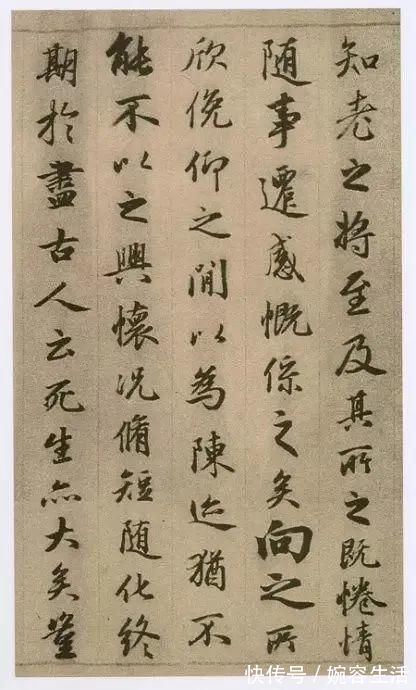 知老之將至及其所之既惓情
随事遷感慨係之矣向之所
欣俛仰之間以為陳迹猶不
能不以之興懷况脩短随化終
期於盡古人云死生亦大矣豈
快传号／婉容生活